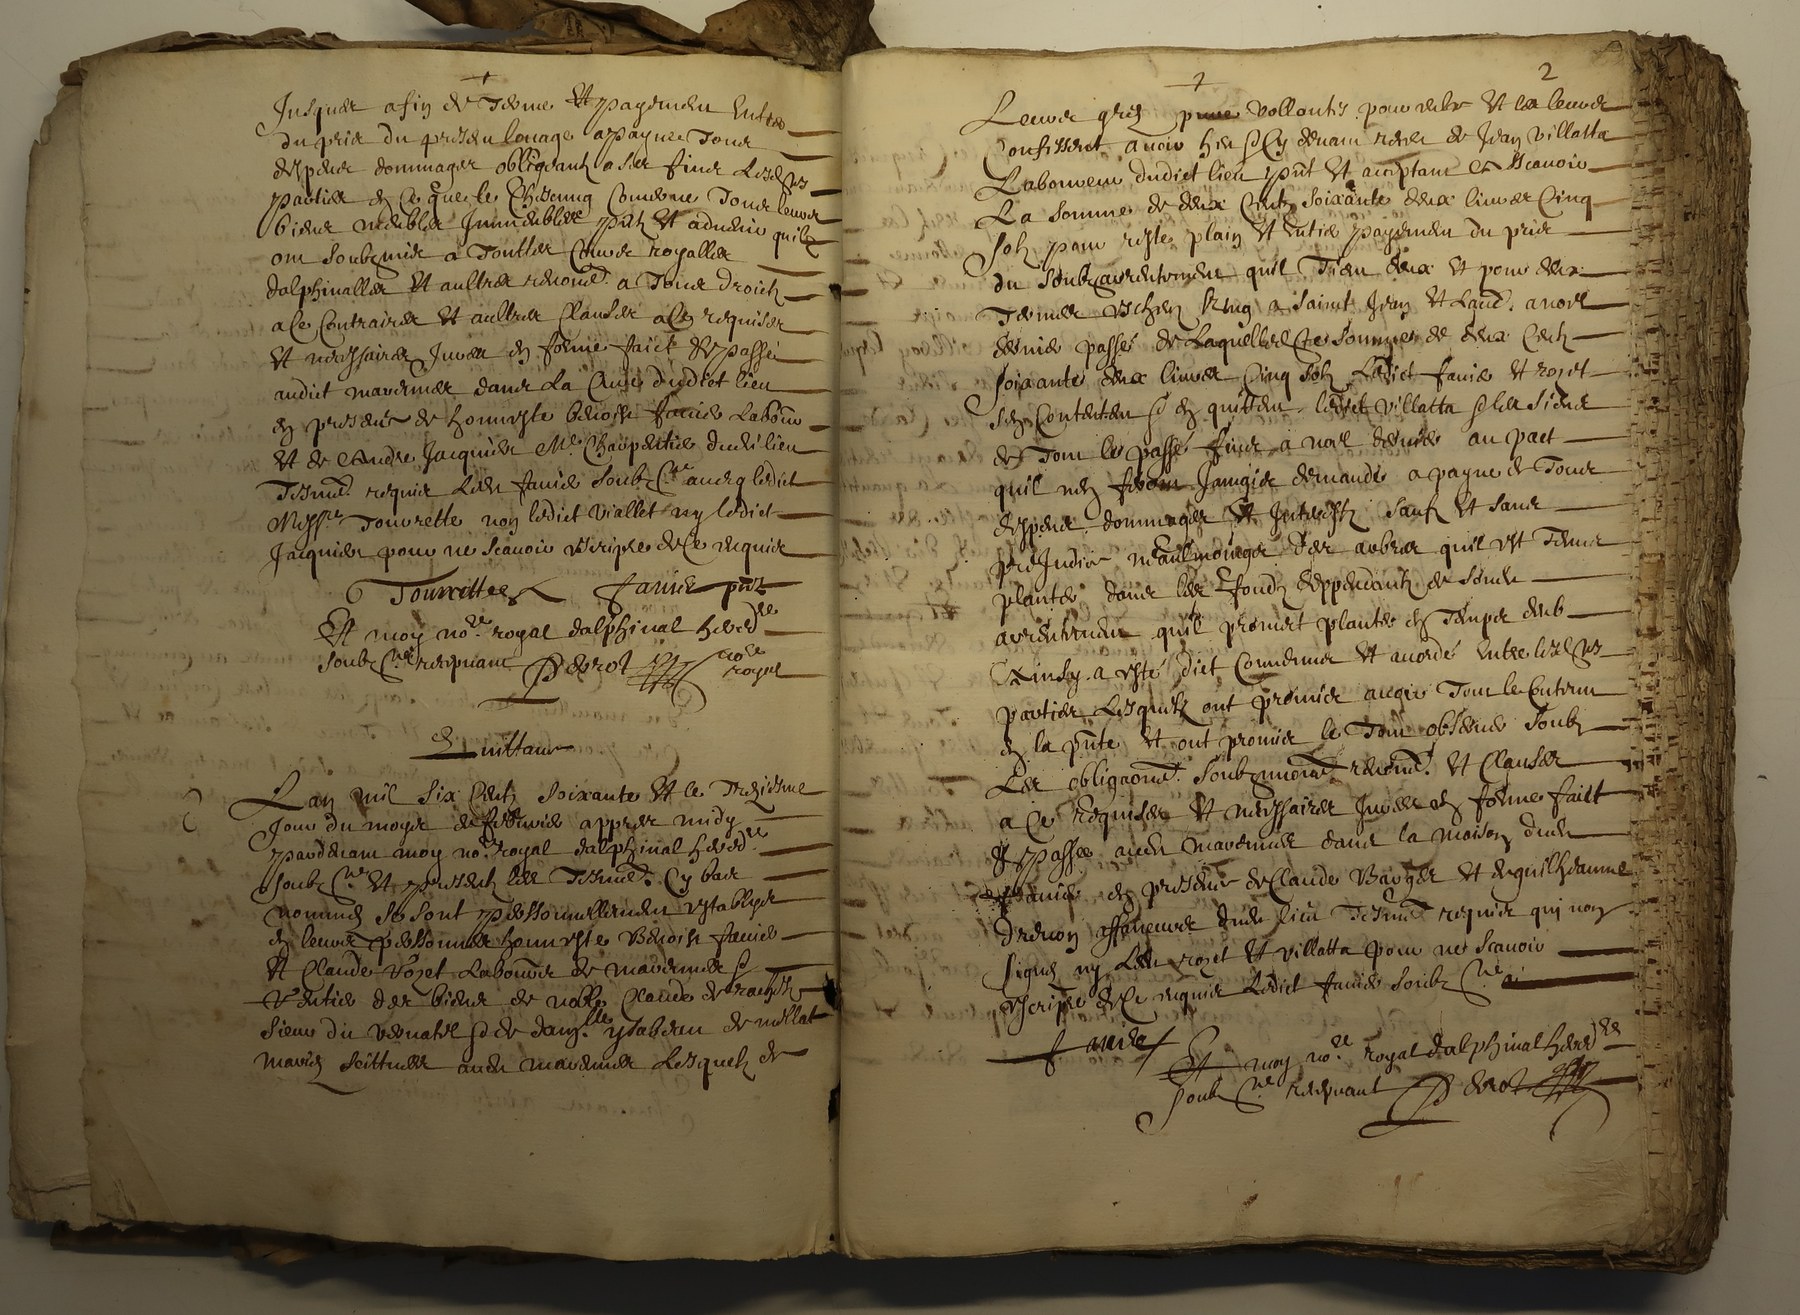 Jusques a fin de terme et payement entier
du prix du present louage a payne de tous
despens dommages obligeants a ses fins lesd
parties en ce que le chescung concerne tous leurs
biens meubles Immeubles pntz et advenir quilz
ont soubzmis a touttes Cours royalles
dalphinalles et aultres renonc. a tous droictz
a ce contraires et aultres clauses a ce requises
et necessaires Jures en forme faict & passé
audict mavernier dans la Cure dudict lieu
en presence de honneste benoist favier labour
et de Andre Jacquier Me Charpentier dudict lieu
tesmn. requis led. favier soubz.ne avecq ledict
Messre Tourrette non ledict viallet ny ledict
Jacquier pour ne scavoir escripre de ce requis
Tourrette favier pnt
Et moy no.re royal dalphinal hered.re
soubz.ne recepvant Perrot no.re royal
Quittance
L an mil six centz soixante et le trezieme
Jour du moys de febvrier appres midy
pardevant moy no.re royal dalphinal hered.re
soubz.ne et presentz les tesmn. cy bas
nommes se sont personnellement establys
en leurs personnes honneste Benoist favier
et Claude rozet laboureurs de
rentier des biens de noble Claude de
sieur du vernatel de dam.lle ysabeau de
maries scittues aud. Lesquelz de
2
Leurs gres pure vollontes pour eulx et les leurs
Confissent avoir heu cy devant receu de Jean villatta
Laboureur dudict lieu pnt et acceptant et Scavoir
La somme de deux centz soixante deux livres cinq
solz pour reste plain et entier payement du prix
du soubzarrentement quil tient deux et pour deux
termes escheuz a saint Jean et a noel
dernier passé de Laquelle somme de deux centz
soixante deux livres cinq solz Ledict favier et rozet
sen contentent et en quittent ledict villatta les siens
de tout le passé Jusques a noel dernier au pact
quil nen feront Jamais demande a payne de tous
despens dommages et Interestz sauf et sans
preJudice des arbres quil est tenu
planter dans les fondz deppendantz de son
arrentement quil promet planter en temps deub
Ainsy a esté dict convenu et acordé entre lesd.
parties Lesquelz ont promis avoir tout le contenu
en la pnte et ont promis le tout observer soubz
Les obligaons. soubzmions. renonc. et Clauses
a ce requises et necessaires Jures en forme faict
& passé aud. dans la maison dud.
favier en presence de Claude et de guilhaume
affaneurs dud. lieu tesmn. requis qui non
signes ny Led. rozet et villatta pour ne scavoir
escripre de ce requis Ledict favier soubz.ne
favier
Et moy no.re royal dalphinal hered.re
soubz.ne recepvant Perrot